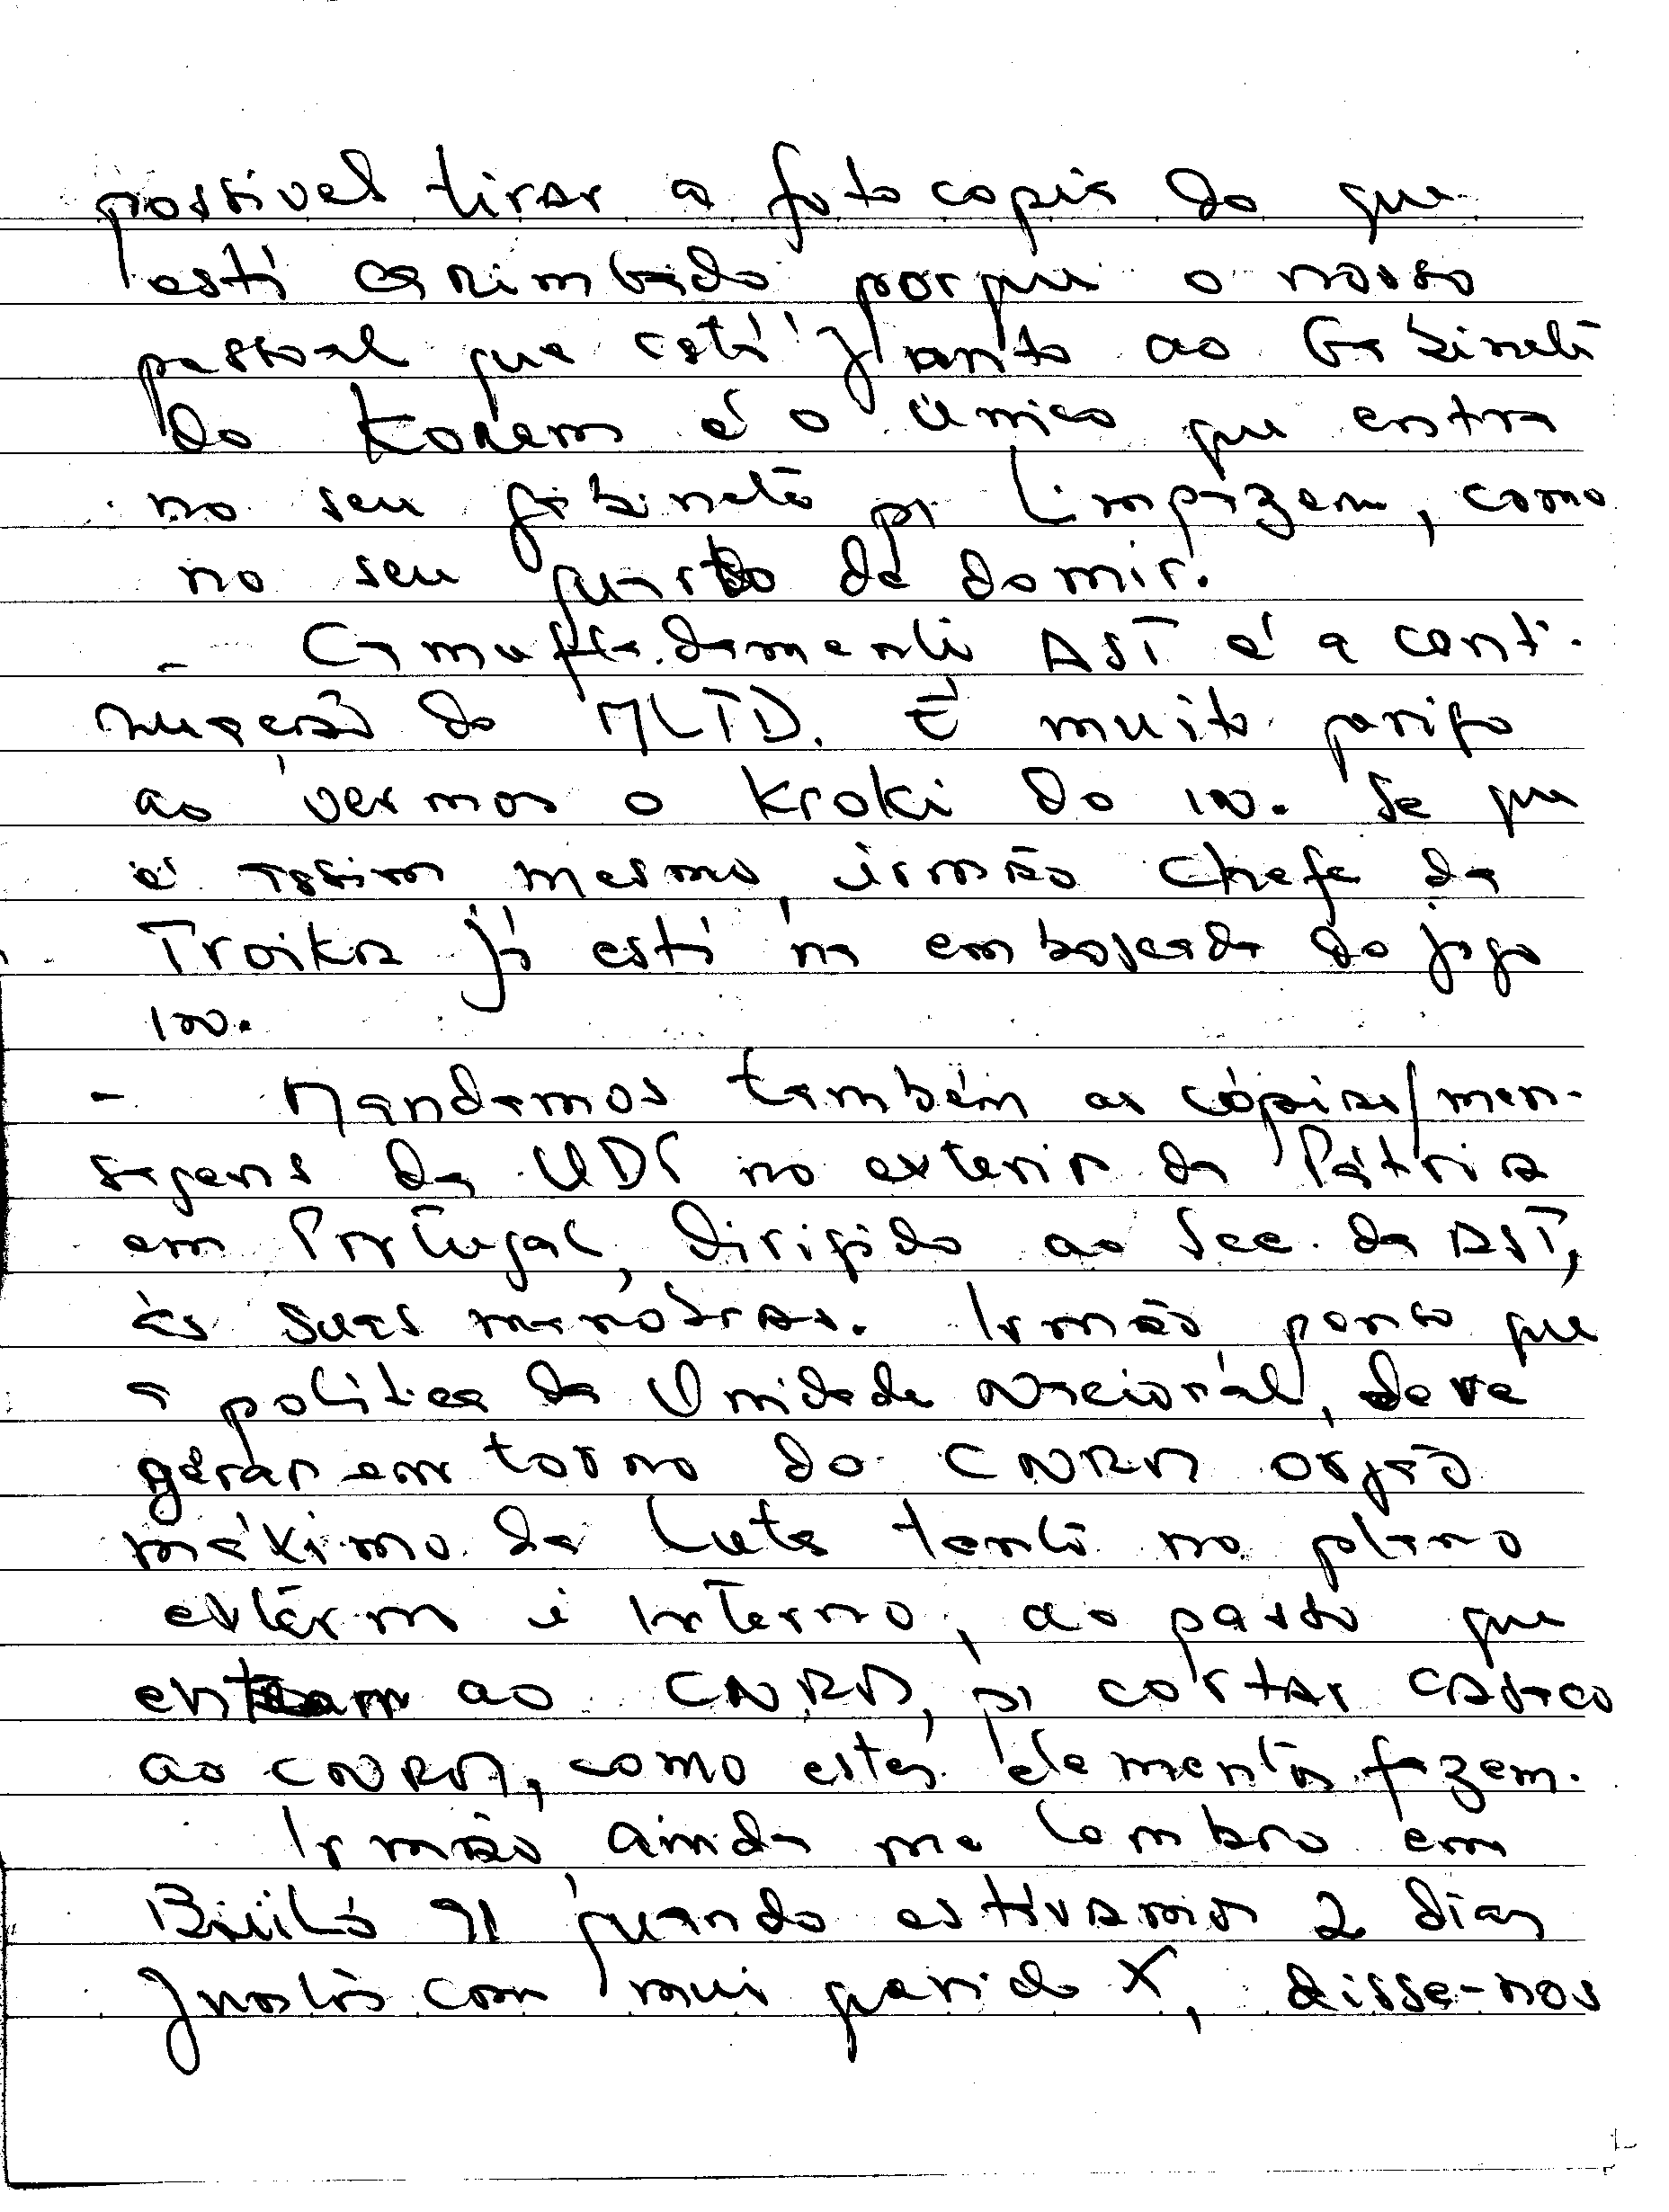 possivel tirar a fotocopia do que
está carimbado porque o nosso
pessoal que está junto ao Gabinete
do Korem é o único que entra
no seu gabinete p/ limpezem, como
no seu quarto de domir.
- Camufladamente AST é a conti-
nuação do MLTD. É muito perigo
ao vermos o Kroki do in. Se que
é assim mesmo, irmão chefe da
Troika já está na emboscada do jogo
in.
- Mandamos também as cópias/men-
sagens da UDT no exterior da Pátria
em Portugal, dirigido ao Sec. da AST,
às suas manobras. Irmão penso que
a politica da Unidade Nacional, deve
gerar em torno do CNRM orgão
máximo da Luta tanto no plano
extérno e interno, ao passo que
entram ao CNRM, p/ cortar casaco
ao CNRM, como estes elementos fazem.
Irmão ainda me lembro em
91 quando estivamos 2 dias
juntos com mui querido X, disse-nos